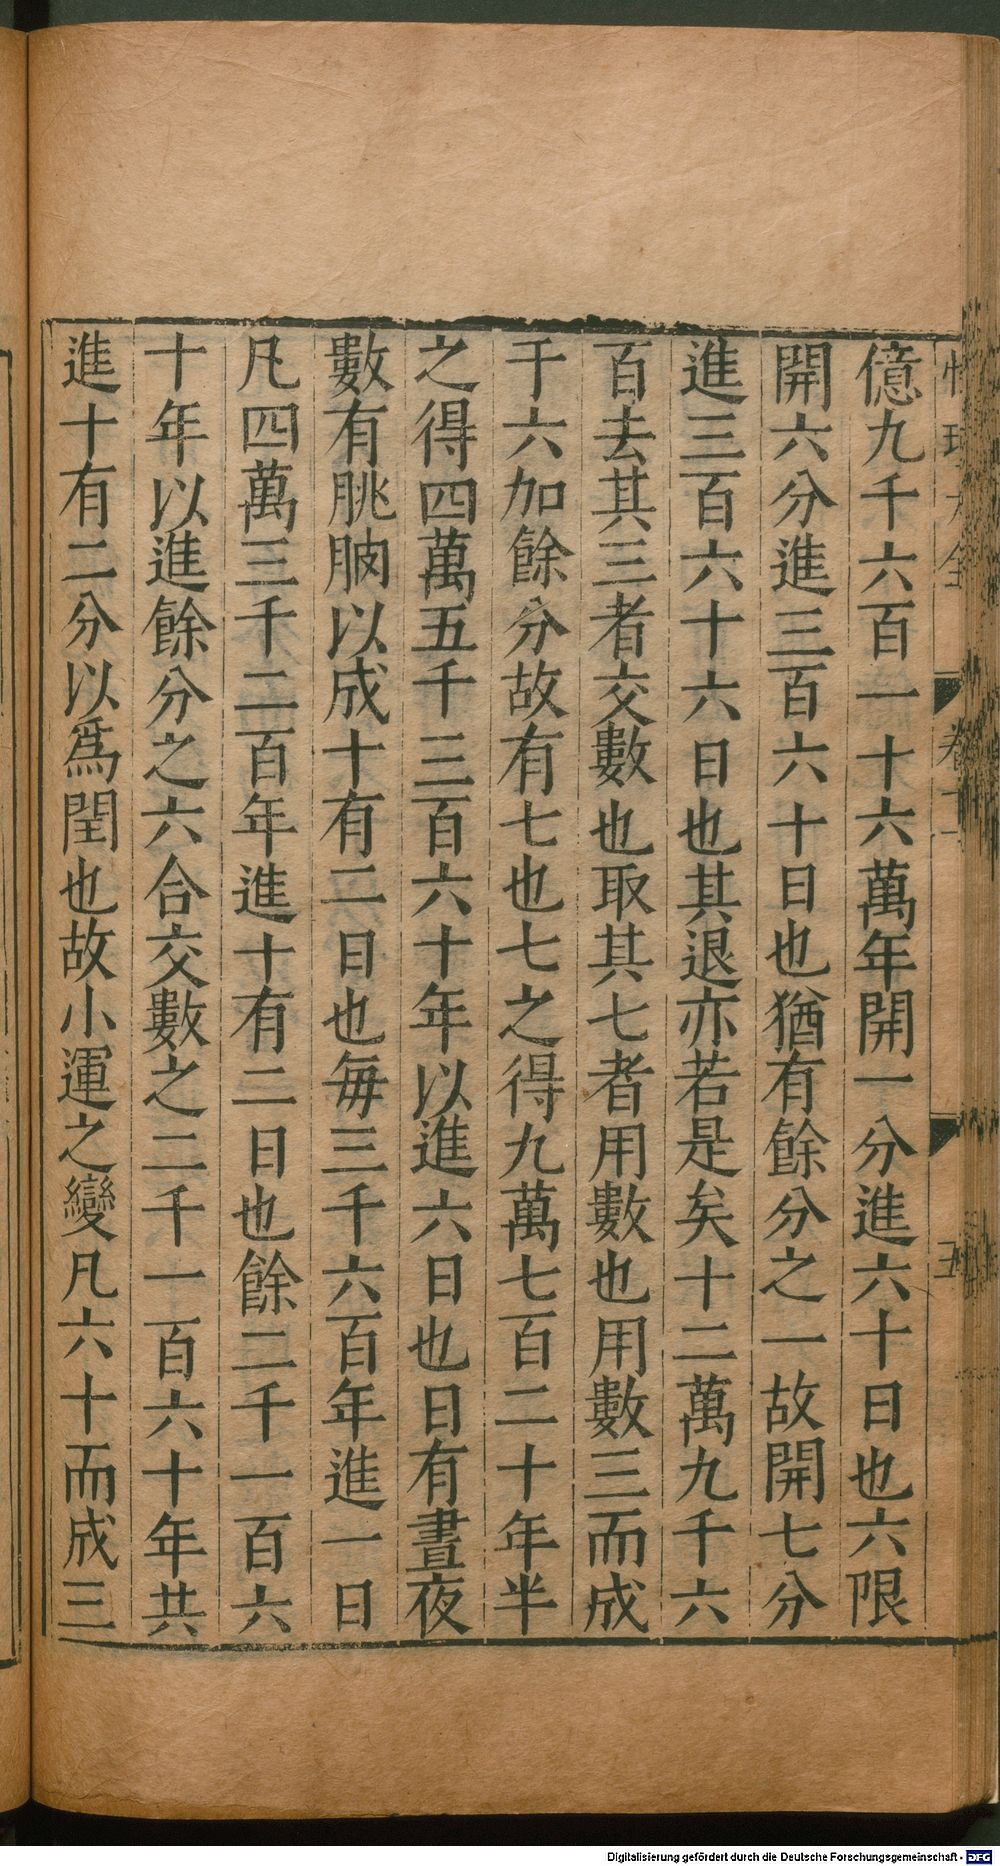 億九千六百一十六萬年開一分進六十日也六限
開六分進三百六十日也猶有餘分之一故開七分
進三百六十六日也其退亦若是矣十二萬九千六
百去其三者交數也取其七者用數也用數三而成
于六加餘分故有七也七之得九萬七百二十年半
之得四萬五千三百六十年以進六日也日有晝夜
數有朓朒以成十有二日也每三千六百年進一日
凡四萬三千二百年進十有二日也餘二千一百六
十年以進餘分之六合交數之二千一百六十年共
進十有二分以爲閏也故小運之變凡六十而成三
Digitalisierung gefördert durch die Deutsche Forschungsgemeinschaft - DFG